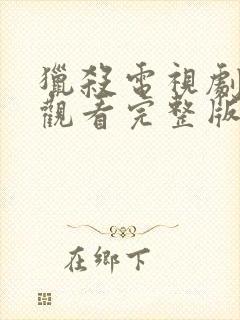 獵殺電視劇
觀看完整版
在鄉下